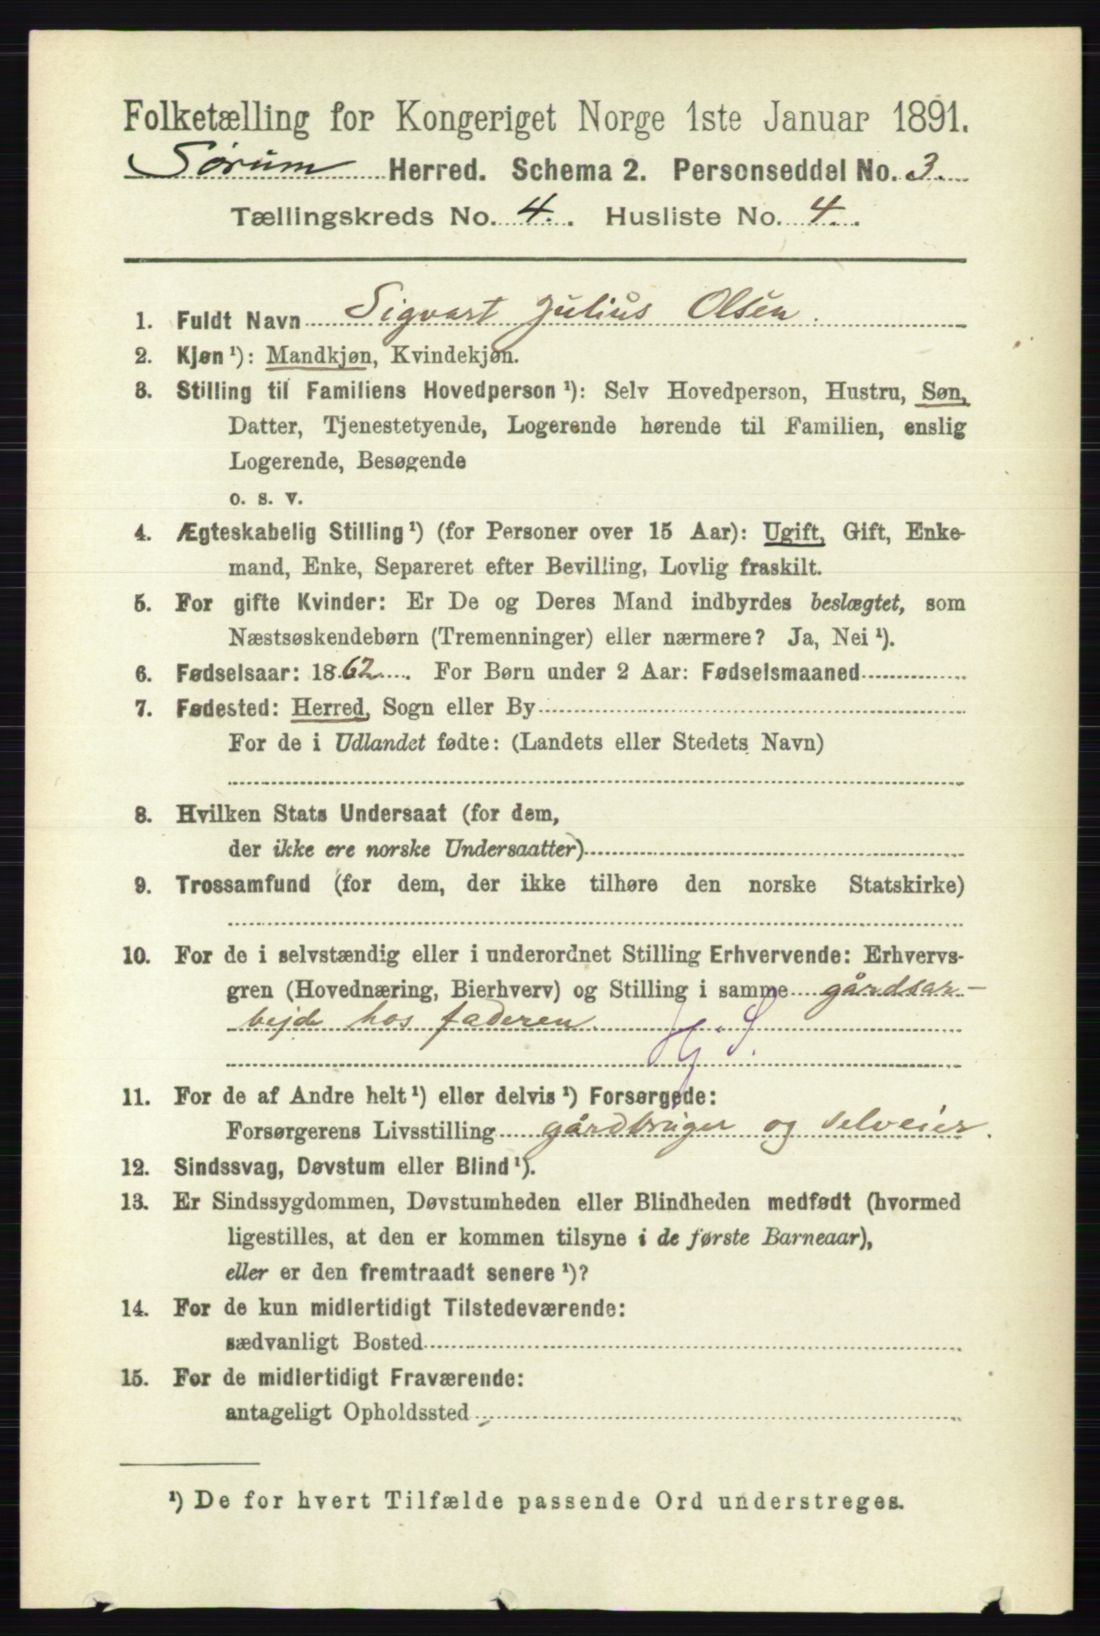 Folketælling for Kongeriget Norge 1ste Januar 1891.
Sørum Herred. Schema 2. Personseddel No. 3.
Tællingskreds No. 4. Husliste No. 4.
1. Fuldt Navn Sigvart Julius Olsen.
2. Kjøn ¹): Mandkjøn, Kvindekjøn.
3. Stilling til Familiens Hovedperson ¹): Selv Hovedperson, Hustru, Søn,
Datter, Tjenestetyende, Logerende hørende til Familien, enslig
Logerende, Besøgende
o. s. v.
4. Ægteskabelig Stilling ¹) (for Personer over 15 Aar): Ugift, Gift, Enke-
mand, Enke, Separeret efter Bevilling, Lovlig fraskilt.
5. For gifte Kvinder: Er De og Deres Mand indbyrdes beslægtet, som
Næstsøskendebørn (Tremenninger) eller nærmere? Ja, Nei ¹).
6. Fødselsaar: 1862. For Børn under 2 Aar: Fødselsmaaned
7. Fødested: Herred, Sogn eller By
For de i Udlandet fødte: (Landets eller Stedets Navn)
8. Hvilken Stats Undersaat (for dem,
der ikke ere norske Undersaatter)
9. Trossamfund (for dem, der ikke tilhøre den norske Statskirke)
10. For de i selvstændig eller i underordnet Stilling Erhvervende: Erhvervs-
gren (Hovednæring, Bierhverv) og Stilling i samme gårdsar-
bejde hos faderen. Hj. S.
11. For de af Andre helt ¹) eller delvis ¹) Forsørgede:
Forsørgerens Livsstilling gårdbruger og selveier.
12. Sindssvag, Døvstum eller Blind ¹).
13. Er Sindssygdommen, Døvstumheden eller Blindheden medfødt (hvormed
ligestilles, at den er kommen tilsyne i de første Barneaar),
eller er den fremtraadt senere ¹)?
14. For de kun midlertidigt Tilstedeværende:
sædvanligt Bosted
15. For de midlertidigt Fraværende:
antageligt Opholdssted
¹) De for hvert Tilfælde passende Ord understreges.